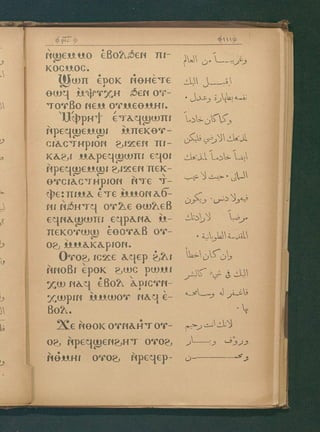 ⲛ̀ϣⲉⲙⲙⲟ ⲉ̀ⲃⲟⲗϧⲉⲛ ⲡⲓ-
ⲕⲟⲥⲙⲟⲥ.
Ϣⲱⲡ ⲉ̀ⲣⲟⲕ ⲛ̀ⲑⲛⲉ̀ⲧⲉ
ⲑⲱϥ ⲙ̀ⲯⲩⲭⲏ ϧⲉⲛ ⲟⲩ-
ⲧⲟⲩⲃⲟ ⲛⲉⲙ ⲟⲩⲙⲉⲑⲙⲏⲓ.
Ⲙ̀ⲫⲣⲏϯ ⲉ̀ⲧⲁϥϣⲱⲡⲓ
ⲛ̀ⲣⲉϥϣⲉⲙϣⲓ ⲙ̀ⲡⲉⲕⲑⲩ-
ⲥⲓⲁⲥⲧⲏⲣⲓⲟⲛ ϩⲓϫⲉⲛ ⲡⲓ-
ⲕⲁϩⲓ ⲙⲁⲣⲉϥϣⲱⲡⲓ ⲉϥⲟⲓ
ⲛ̀ⲣⲉϥϣⲉⲙϣⲓ ϩⲓϫⲉⲛ ⲡⲉⲕ-
ⲑⲩⲥⲓⲁⲥⲧⲏⲣⲓⲟⲛ ⲛ̀ⲧⲉ ⲧ̀-
ⲫⲉ: ⲡⲓⲙⲁ ⲉ̀ⲧⲉ ⲙ̀ⲙⲟⲛ ⲁϭ-
ⲛⲓ ⲛ̀ϧⲏⲧϥ ⲟⲩⲇⲉ ⲑⲱⲗⲉⲃ
ⲉϥⲛⲁϣⲱⲡⲓ ⲉϥⲣⲁⲛⲁ ⲙ̀-
ⲡⲉⲕⲟⲩⲱϣ ⲉⲑⲟⲩⲁⲃ ⲟⲩ-
ⲟϩ ⲙ̀ⲙⲁⲕⲁⲣⲓⲟⲛ.
Ⲟⲩⲟϩ ⲓⲥϫⲉ ⲁϥⲉⲣ ϩ̀ⲗⲓ
ⲛ̀ⲛⲟⲃⲓ ⲉ̀ⲣⲟⲕ ϩⲱⲥ ⲣⲱⲙⲓ
ⲭⲱ ⲛⲁϥ ⲉ̀ⲃⲟⲗ ⲁ̀ⲣⲓⲥⲩⲛ-
ⲭⲱⲣⲓⲛ ⲙ̀ⲙⲱⲟⲩ ⲛⲁϥ ⲉ̀-
ⲃⲟⲗ.
Ϫⲉ ⲛ̀ⲑⲟⲕ ⲟⲩⲛⲁⲏⲧ ⲟⲩ-
ⲟϩ ⲛ̀ⲣⲉϥϣⲉⲛϩⲏⲧ ⲟⲩⲟϩ
ⲛ̀ⲑⲙⲏⲓ ⲟⲩⲟϩ ⲛ̀ⲣⲉϥⲉⲣ-
«١١١»
وغريباً من العالم
اقبل اليك
نفسه بطهارة وعدل .
وكما كان خادماً
لمذبحك الارضي فليكن
ايضاً خادماً لمذبحك
السمائي . حيث لا عيب
فيه ولا دنس . ويكون
مرضياً لارادتك
المقدسة الطوبانية .
وان كان اخطأ
اليك في شيء كالبشر
فاغفر له وسامحه
بها .
لانك انت رحيم
ورؤف وبار